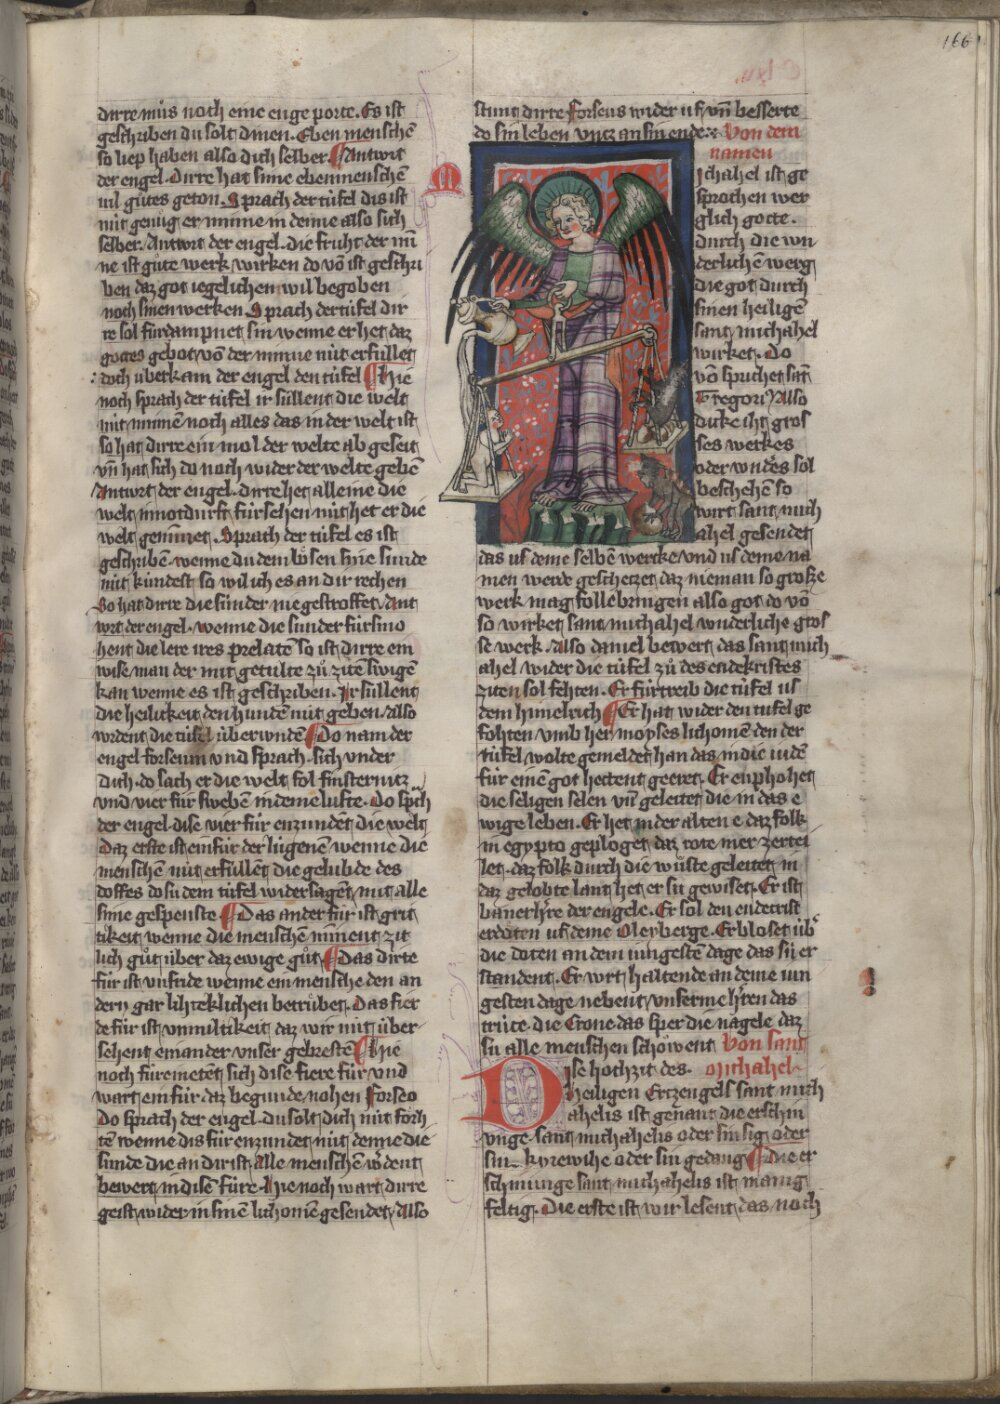 166
C lxv
dirre můs noch eine enge porte. Es ist
geschriben du solt dinen. Eben menschē
so liep haben also dich selber. Antwrt
der engel. Dirre hat sime ebenmenschē
vil gůtes geton. Sprach der tüfel dis ist
nüt genůg er minne in denne also sich
selber. Antwrt der engel. die fruht der mī
ne ist gůte werk wirken do vō ist geschri
ben daz got iegelichen wil begoben
noch sinen werken. Sprach der tüfel dir
re sol fürdampnet sin wenne er het daz
gottes gebot vō der minne nüt erfüllet
doch überkam der engel den tüfel Hie
noch sprach der tüfel ir süllent die welt
nüt minnē noch alles das in der welt ist
so hat dirre ein mol der welte ab geseit
vn̄ hat sich do noch wider der welte gebē
Antwrt der engel. dirre het alleine die
welt innotdurft fürsehen nüt het er die
welt geminnet. Sprach der tüfel es ist
geschribē. wenne du dem bösen sine sunde
nüt kündest so wil ich es an dir rechen
So hat dirre die sünder nie gestroffet. Ant
wrt der engel. wenne die sunder fürsmo
hent die lere ires prelatē so ist dirre ein
wise man der mit getulte zů zite swigē
kan wenne es ist geschriben. Ir süllent
die heilikeit den hundē nüt geben. also
wrdent die tüfel überwndē Do nam der
engel forseum vnd sprach. sich vnder
dich. do sach er die welt fol finsternüz
vnd vier für swebē in deme lufte. Do spch
der engel. dise vier für enzundēt die welt
Daz erste ist ein für der lügenē wenne die
menschē nüt erfüllēt die gelubde des
doffes do sü dem tüfel widersagēt mit alle
sime gespenste Das ander für ist grit
tikeit wenne die menschē minnent zit
lich gůt über daz ewige gůt Das dirte
für ist vnfride wenne ein mensche den an
dern gar lihteklichen betrübet. Das fier
de für ist vnmiltikeit daz wir nüt über
sehent einander vnser gebrestē Hie
noch füreinetēt sich dise fiere für vnd
wart ein für daz begunde nohen Forseo
Do sprach der engel. du solt dich nüt förh
tē wenne dis für enzundet nüt denne die
sunde die an dir ist. alle menschē wdent
bewert in disē füre. Hie noch wart dirre
geist wider in sinē lichomē gesendet. Also
stunt dirre Forseus wider uf vn̄ besserte
do sin leben vntz an sin ende Von dem
namen
M
ichahel ist ge
sprochen wer
glich gotte.
durch die wn
derlichē werg
die got durch
sinen heiligē
sant michahel
wirket. Do
vō spricht sāt
Gregori Also
dicke iht gros
ses werkes
oder wndes sol
beschehē so
wirt sant mich
ahel gesendet
das us deme selbē wercke vnd us deme na
men werde geschetzet daz nieman so große
werk mag follebringen also got do vō
so wirket sant michahel wnderliche gros
se werk. Also daniel bewert das sant mich
ahel wider die tüfel zů des endekristes
ziten sol fehten. Er fürtreib die tüfel us
dem himelrich Er hat wider den tüfel ge
fohten vmb her moyses lichomē den der
tüfel wolte gemeldet han das in die iudē
für einē got hettent geeret. Er enphohet
die seligen selen vn̄ geleitet die in das e
wige leben. Er het in der alten e daz folk
in egypto geploget daz rote mer zertei
let. daz folk durch die wüste geleitet in
daz gelobte lant het er sü gewiset. Er ist
banerhre der engele. Er sol den endecrist
erdöten uf deme Oleyberge. Er bloset üb
die doten an dem iungestē dage das sü er
standent. Er wrt haltende an deme iun
gesten dage nebent vnserme hren das
crüce. die Crone das sper die nagele daz
sü alle menschen schöwent Von sant
Dise hochzit des Michahel
heiligen Ertzengels sant mich
ahelis ist genant die erschin
unge sant michahelis oder sin sig oder
sin kyrewihe oder sin gedang Die er
schinunge sant michahelis ist manig
feltig. Die erste ist wir lesent das noch